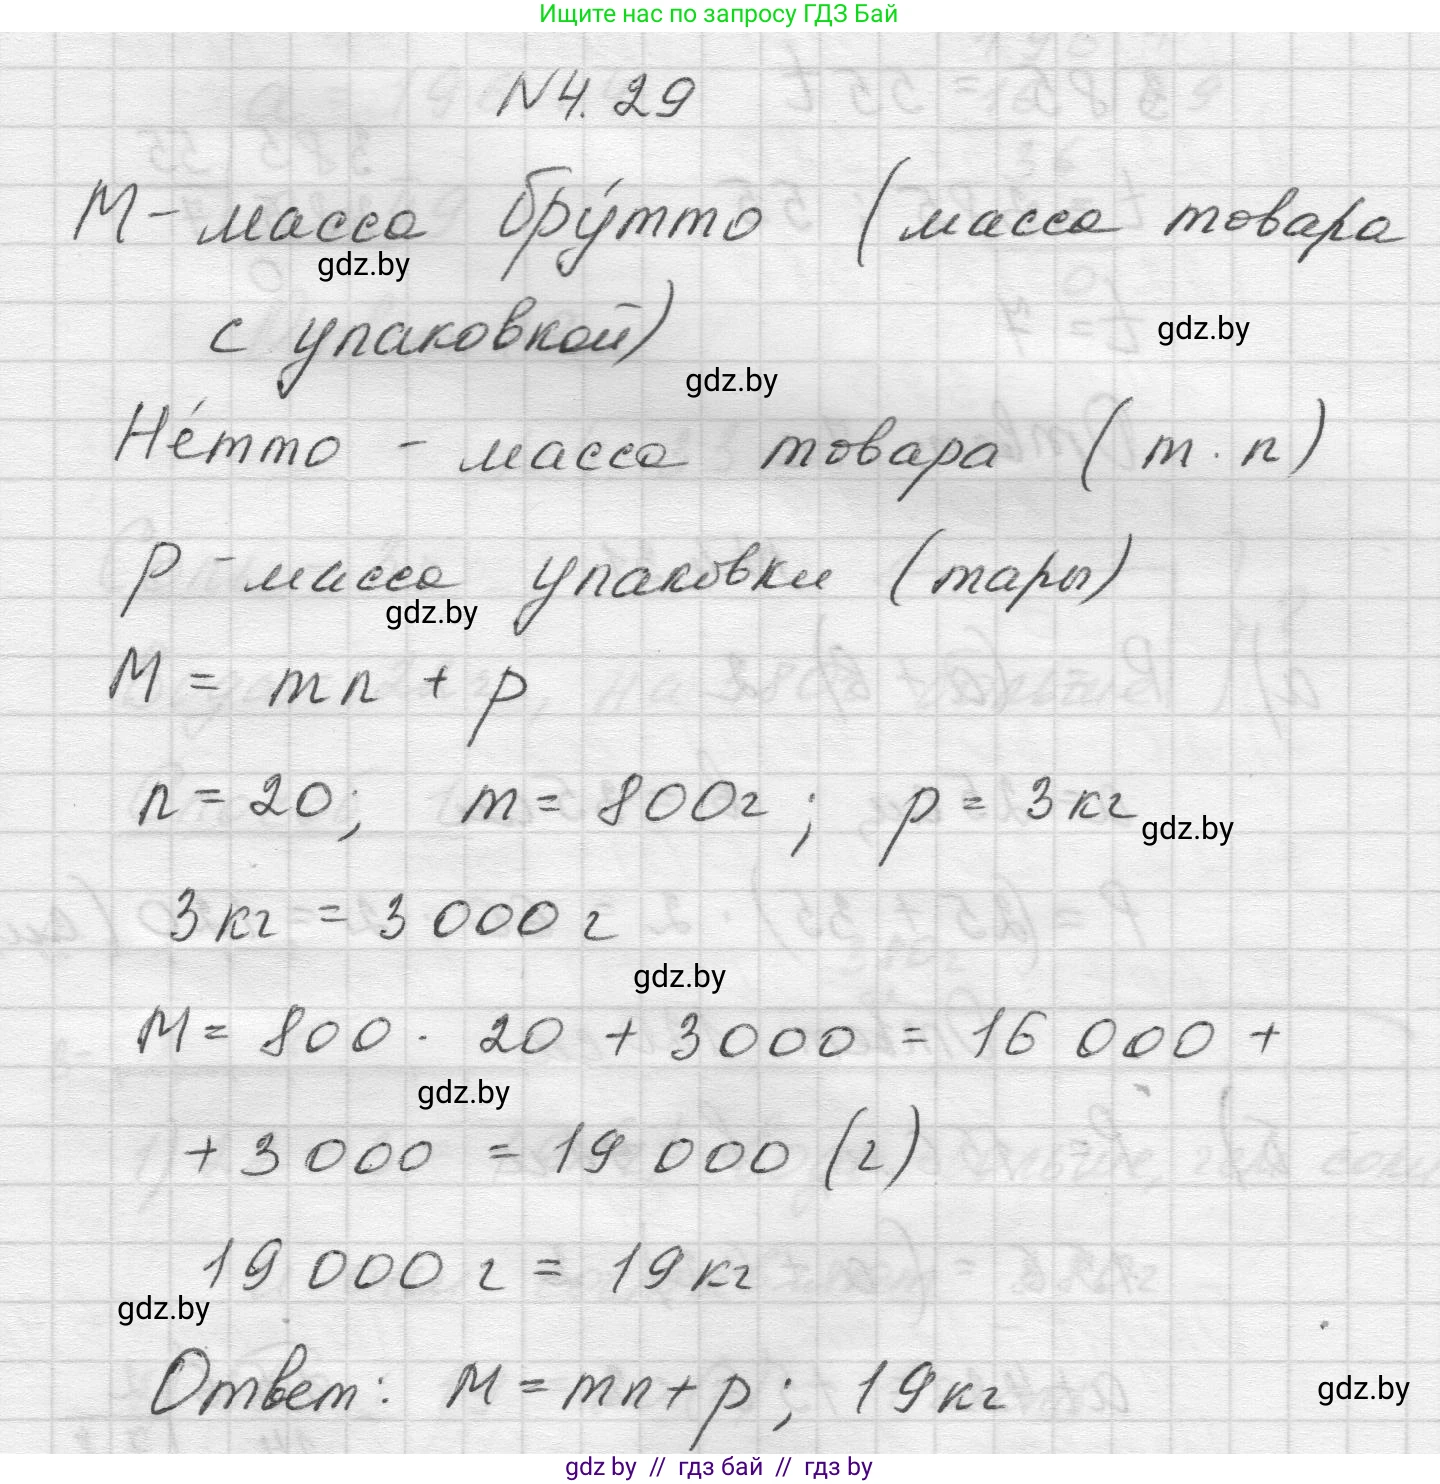 Ищите нас по запросу ГДЗ Бай
N4.29
M - масса брýтто (масса товара
gdz.by
с упаковкой)
gdz.by
gdz.by
Нéтто - масса товара (m · n)
p - масса упаковки (тары)
gdz.by
M = mn + p
n = 20; m = 800г; p = 3кг
gdz.by
3кг = 3000г
gdz.by
M = 800 · 20 + 3000 = 16 000 +
gdz.by
+ 3000 = 19 000 (г)
19 000 г = 19кг
gdz.by
Ответ: M = mn + p; 19кг
gdz.by
gdz by // гдз бай // гдз by